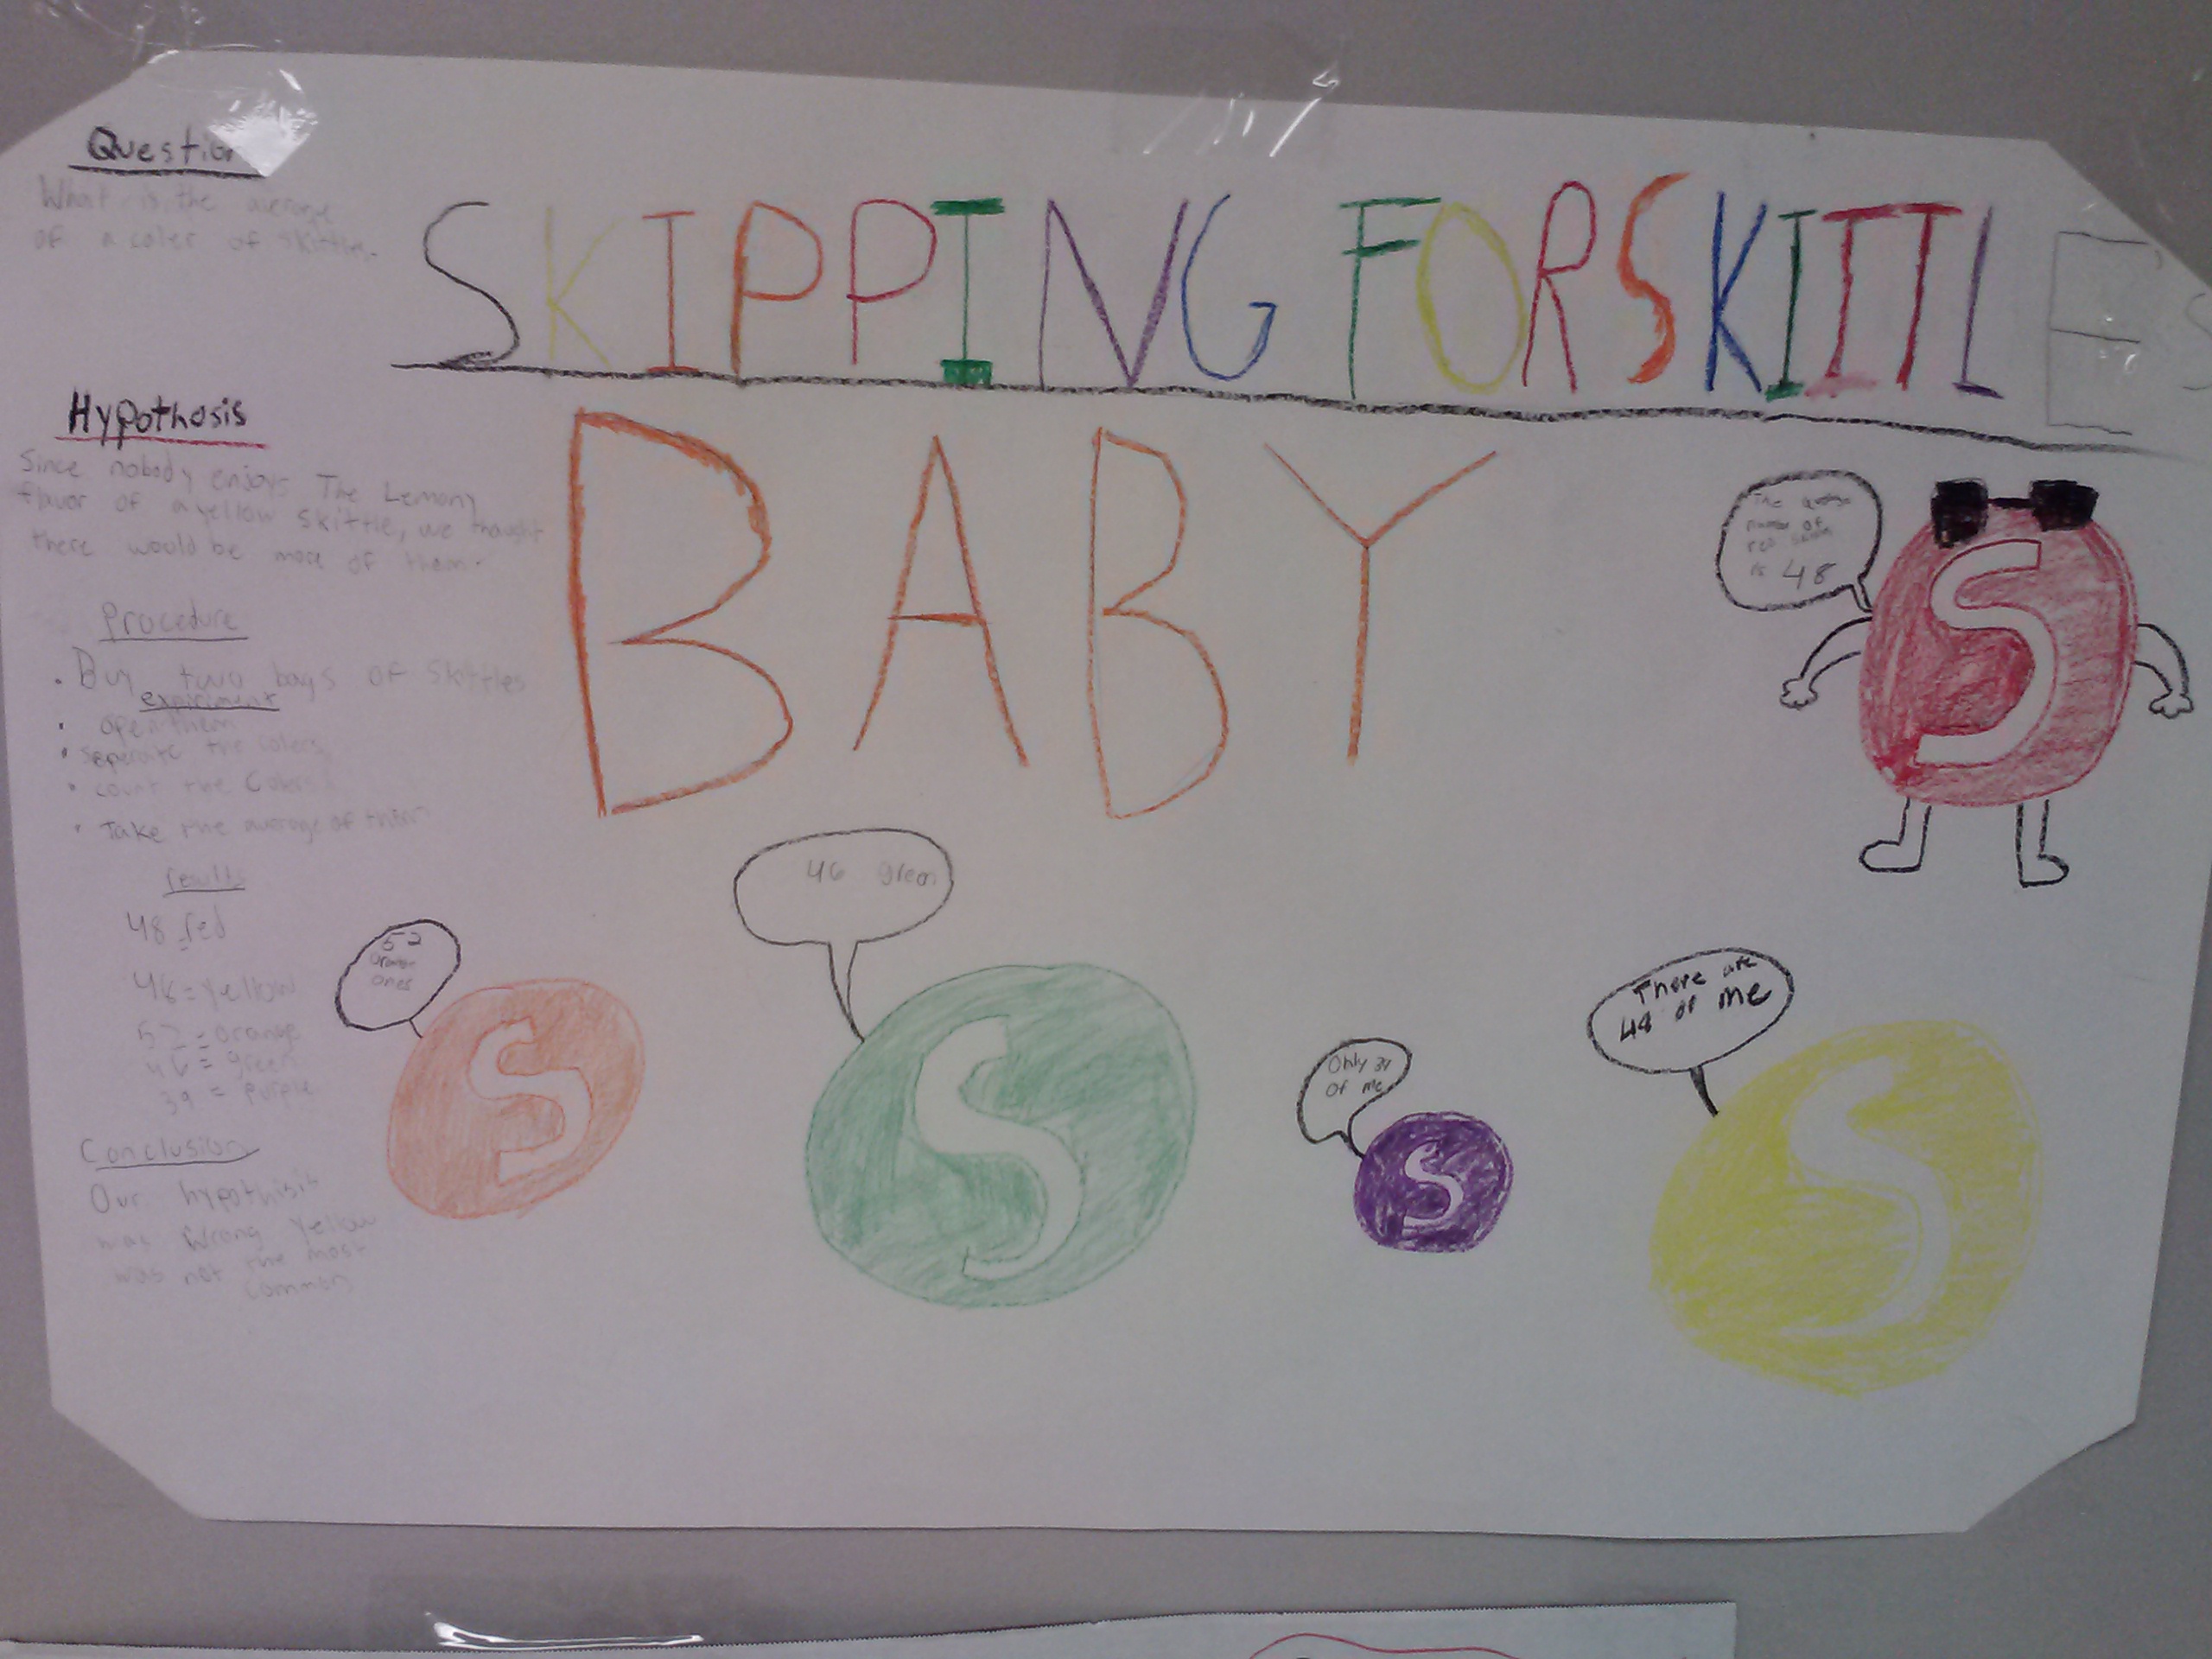 Question
What is the average
of a coler of skittle.
SKIPPING FOR SKITTLES
BABY
Hypothosis
Since nobody enjoys The Lemony
flavor of a yellow skittle, we thought
there would be more of them.
Procedure
• Buy two bags of skittles
expiriment
• open them
• seperate the colers
• count the Colers
• Take the average of them
results
48 = red
48 = yellow
52 = orange
46 = green
39 = purple
Conclusion
Our hypothisis
was wrong yellow
was not the most
common
The average
number of
red
is 48
S
52
orange
ones
S
46 green
S
Only 39
of me
S
There are
48 of me
S